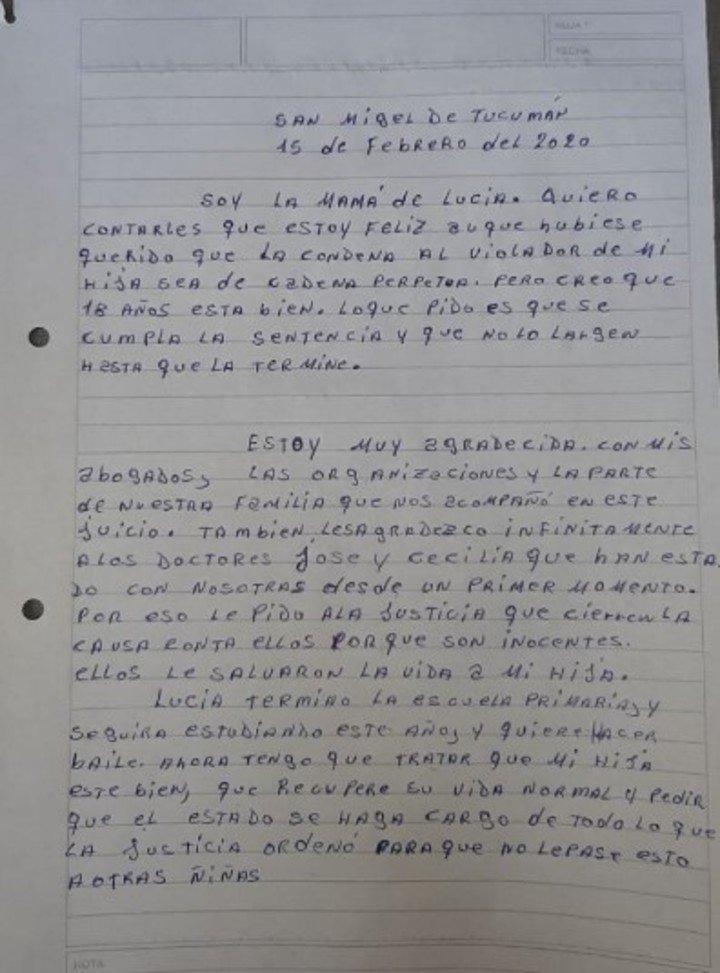 HOJA Nº
FECHA
SAN MIGEL DE TUCUMÁN
15 de FEBRERO del 2020
SOY LA MAMÁ de LUCIA. QUIERO
CONTARLES que ESTOY FELIZ auque hubiese
querido que LA CONDENA AL VIOLADOR de MI
HIJA SEA de CADENA PERPETUA. PERO CREO que
18 AÑOS ESTA bien. LOQUE PIDO es que se
CUMPLA LA SENTENCIA Y QUE NO LO LARGEN
HASTA QUE LA TERMINE.
ESTOY MUY AGRADECIDA. CON MIS
abogados, LAS ORGANIZACIONES Y LA PARTE
de NUESTRA FAMILIA QUE NOS ACOMPAÑÓ EN ESTE
JUICIO. TAMBIEN LESAGRADEZCO INFINITAMENTE
ALOS DOCTORES JOSE Y CECILIA QUE HAN ESTA
DO CON NOSOTRAS desde UN PRIMER MOMENTO.
POR ESO LE PIDO ALA JUSTICIA QUE CIERREN LA
CAUSA CONTA ELLOS PORQUE SON INOCENTES.
ELLOS LE SALVARON LA VIDA A MI HIJA.
LUCIA TERMINO LA ESCUELA PRIMARIA, Y
SEGUIRA ESTUDIANDO ESTE AÑO, Y QUIERE HACER
BAILE. AHORA TENGO QUE TRATAR QUE MI HIJA
ESTE BIEN, QUE RECUPERE SU VIDA NORMAL Y PEDIR
QUE EL ESTADO SE HAGA CARGO DE TODO LO QUE
LA JUSTICIA ORDENÓ PARA QUE NO LEPASE ESTO
AOTRAS ÑIÑAS
NOTA